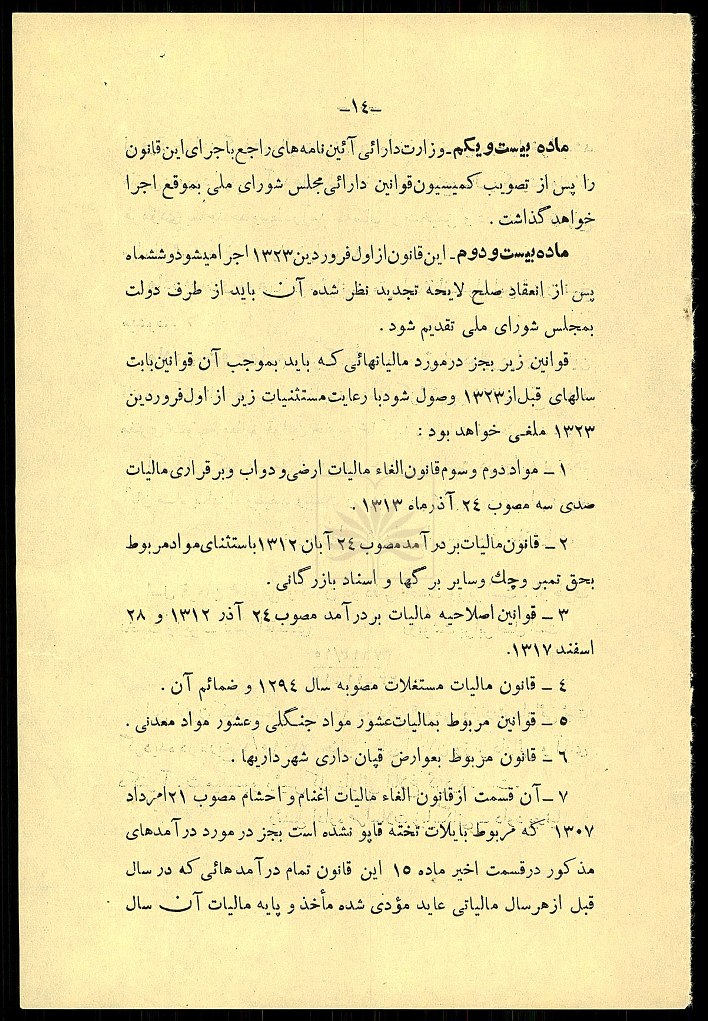 ـ١٤ـ
ماده بیست و یکم ـ وزارت دارائی آئین نامه های راجع باجرای این قانون
را پس از تصویب کمیسیون قوانین دارائی مجلس شورای ملی بموقع اجرا
خواهد گذاشت .
ماده بیست و دوم ـ این قانون از اول فروردین ١٣٢٣ اجرا میشود و ششماه
پس از انعقاد صلح لایحه تجدید نظر شده آن باید از طرف دولت
بمجلس شورای ملی تقدیم شود .
قوانین زیر بجز در مورد مالیاتهائی که باید بموجب آن قوانین بابت
سالهای قبل از ١٣٢٣ وصول شود با رعایت مستثنیات زیر از اول فروردین
١٣٢٣ ملغی خواهد بود :
١ ـ مواد دوم و سوم قانون الغاء مالیات ارضی و دواب و برقراری مالیات
صدی سه مصوب ٢٤ آذر ماه ١٣١٣ .
٢ ـ قانون مالیات بر درآمد مصوب ٢٤ آبان ١٣١٢ باستثنای مواد مربوط
بحق تمبر و چك و سایر برگها و اسناد بازرگانی .
٣ ـ قوانین اصلاحیه مالیات بر درآمد مصوب ٢٤ آذر ١٣١٢ و ٢٨
اسفند ١٣١٧.
٤ ـ قانون مالیات مستغلات مصوبه سال ١٢٩٤ و ضمائم آن .
٥ ـ قوانین مربوط بمالیات عشور مواد جنگلی و عشور مواد معدنی .
٦ ـ قانون مربوط بعوارض قپان داری شهرداریها .
٧ ـ آن قسمت از قانون الغاء مالیات اغنام و احشام مصوب ٢١ امرداد
١٣٠٧ که مربوط بایلات تخته قاپو نشده است بجز در مورد درآمدهای
مذکور در قسمت اخیر ماده ١٥ این قانون تمام درآمدهائی که در سال
قبل از هر سال مالیاتی عاید مؤدی شده مأخذ و پایه مالیات آن سال